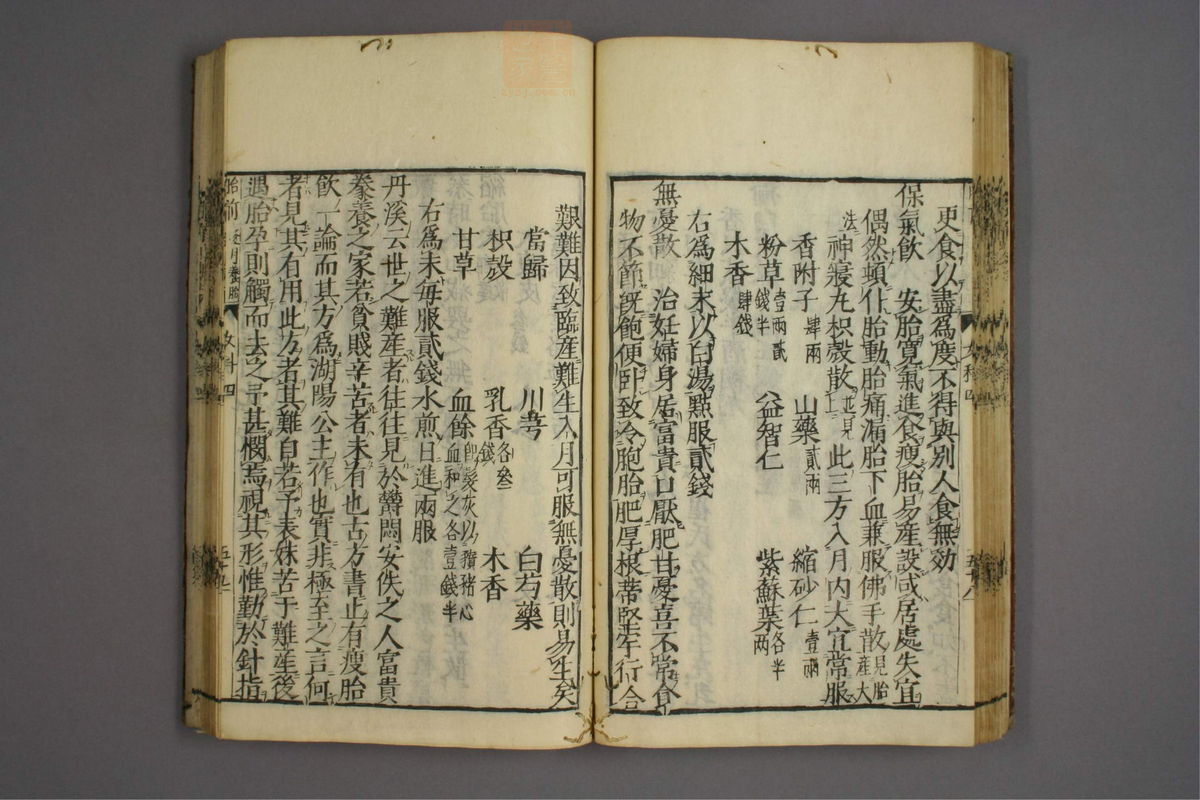 更食以盡為度不得與別人食無効
保氣飲　安胎寬氣進食瘦胎易產設或居處失宜
偶然頓仆胎動胎痛漏胎下血兼服佛手散見胎產大
法神寢丸枳殼散並見此三方入月內大宜常服
香附子肆兩　山藥貳兩　縮砂仁壹兩
粉草壹兩貳錢半　益智仁　紫蘇葉各半兩
木香肆錢
右為細末以白湯點服貳錢
無憂散　治妊婦身居富貴口厭肥甘憂喜不常食
物不節既飽便臥致冷胞胎肥厚根蒂堅牢行合
艱難因致臨產難生入月可服無憂散則易生矣
當歸　川芎　白芍藥
枳殼　乳香各叁錢　木香
甘草　血餘即髮灰以豶猪心血和之各壹錢半
右為末每服貳錢水煎日進兩服
丹溪云世之難產者往往見於欝悶安佚之人富貴
豢養之家若貧賤辛苦者未有也古方書止有瘦胎
飲一論而其方為湖陽公主作也實非極至之言何
者見其有用此方者其難自若予表妹苦于難產後
遇胎孕則觸而去之予甚憫焉視其形惟勤於針指
胎前　逐月養胎　女科四